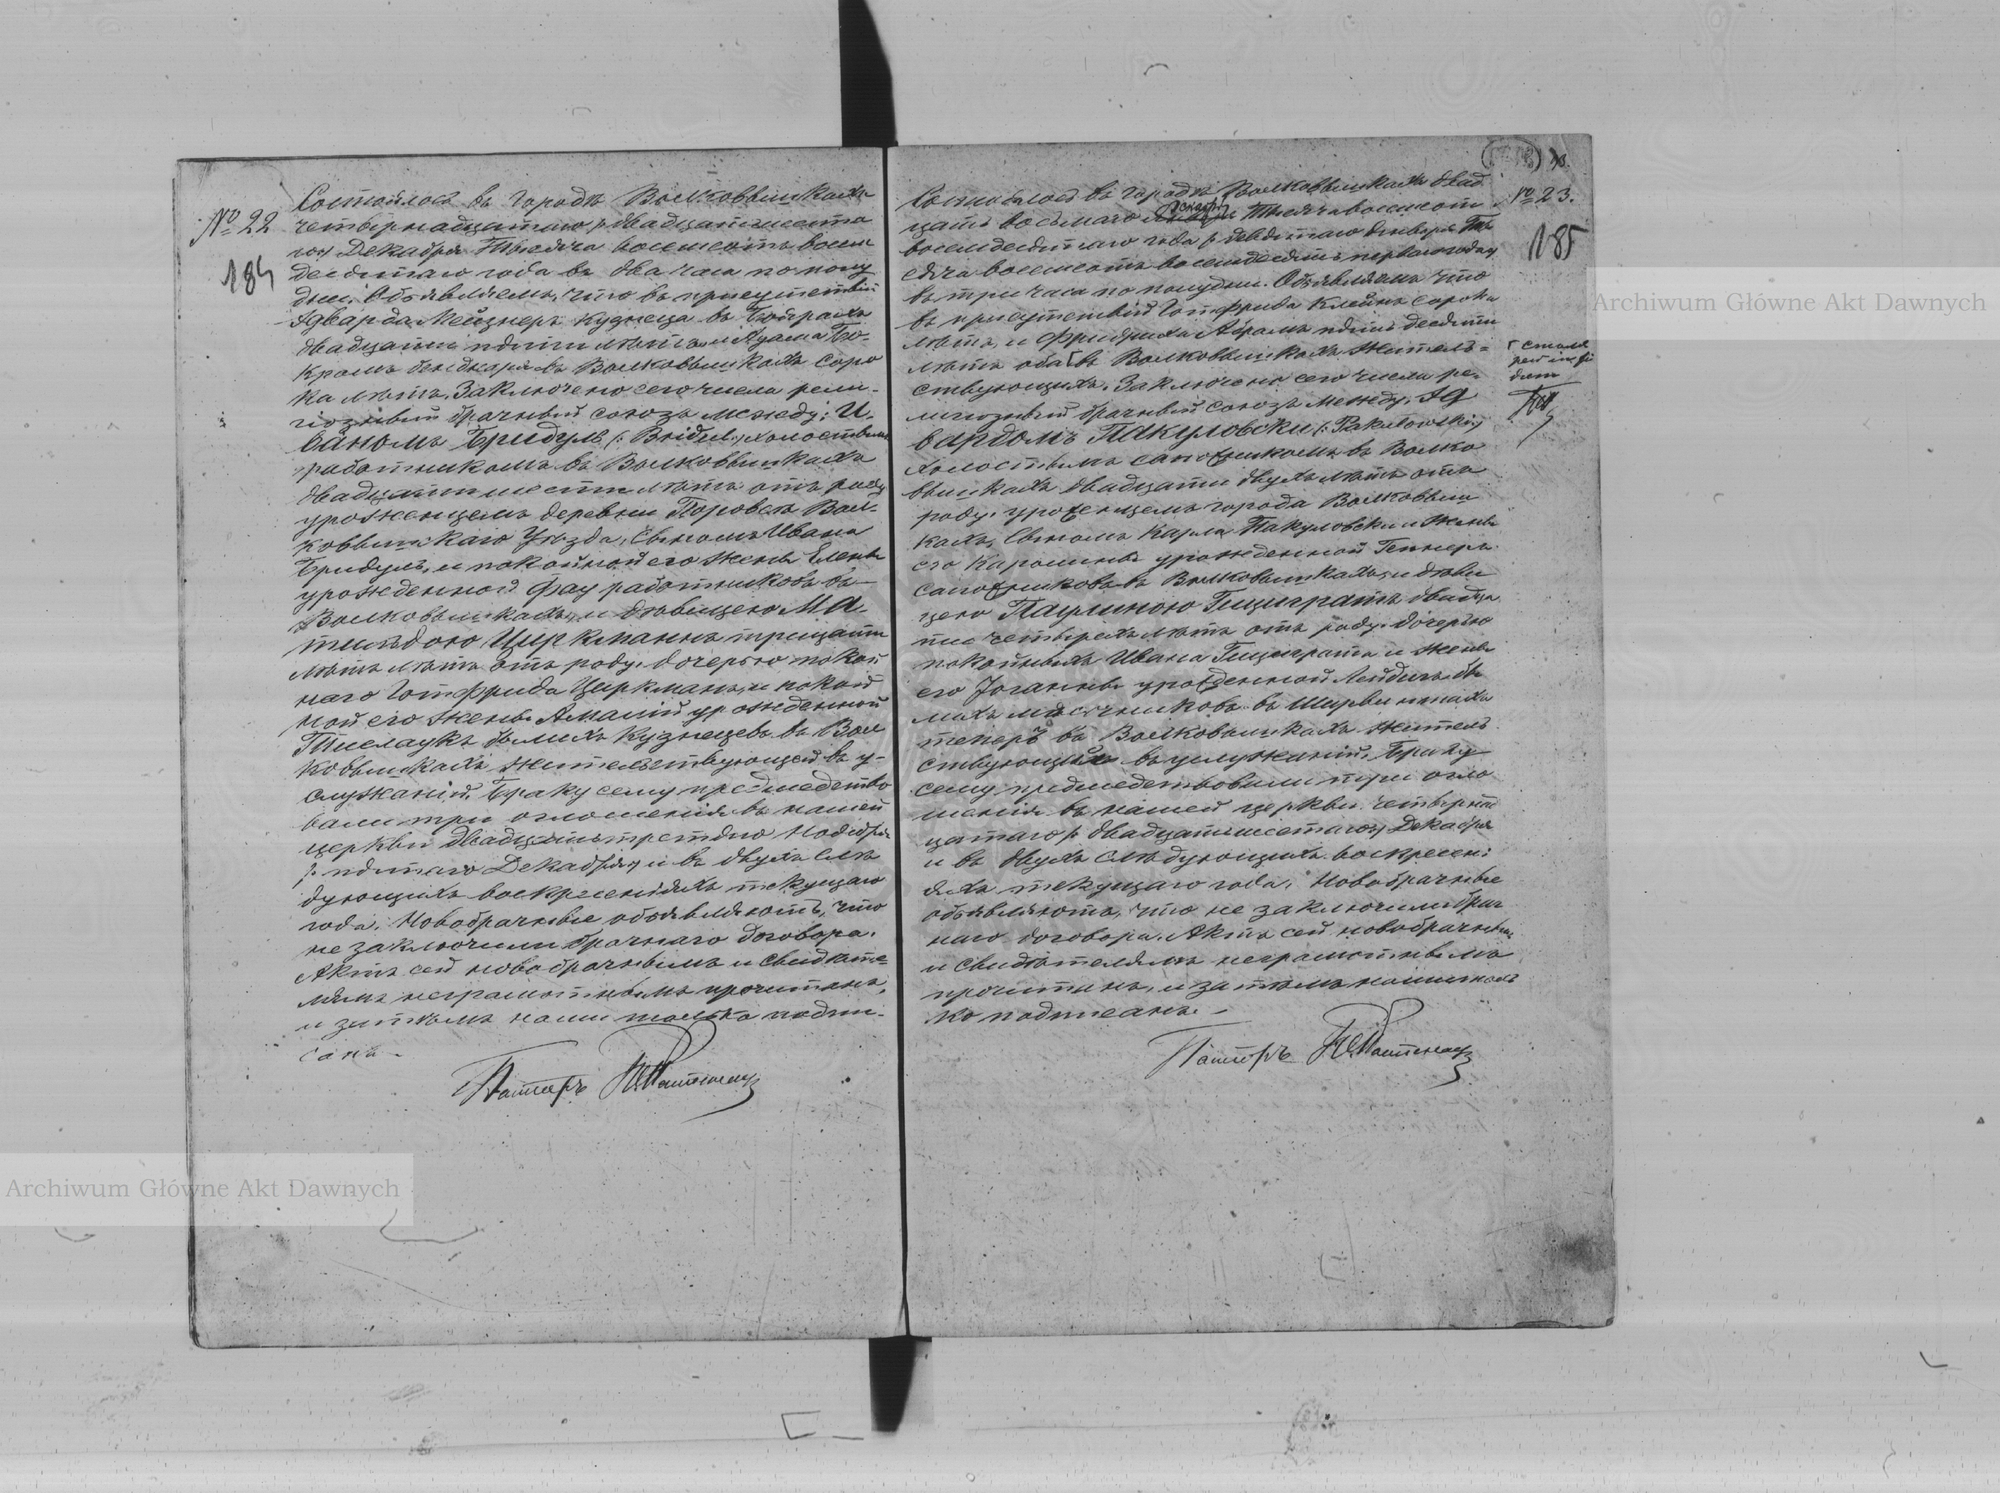 № 22
184
Состоялось въ городѣ Волковышкахъ
четырнадцатаго /: двадцать шеста
го :/ Декабря Тысяча восемсотъ восем
десятаго года въ два часа по полу
дни. Объявляемъ, что въ присутствіи
Эдварда Мейзнеръ кузнеца въ
двадцати пяти лѣтъ и Адама
въ Волковышкахъ соро
ка лѣтъ. Заключено сего числа рели-
гіозный брачный союзъ между: И-
ваномъ Бридуль (: Bridul :) холостымъ
работникомъ въ Волковышкахъ
двадцати шести лѣтъ отъ роду
уроженцемъ деревни Поровсъ Вол-
ковышскаго Уѣзда, сыномъ Ивана
Бридуль, и покойной его жены Елены
урожденной Фау работниковъ въ
Волковышкахъ, и дѣвицею Ма-
тильдою Циркманнъ тридцати
лѣтъ лѣтъ отъ роду, дочерью покой
наго Готфрида Циркманъ, и покой
ной его жены Амаліи урожденной
бывшихъ Кузнецевъ въ Вол
ковышкахъ жительствующей въ у-
служаніи. Браку сему предшедство
вали три оглошенія въ нашей
церкви двадцать третяго Ноября
/: пятаго Декабря :/ и въ двухъ слѣ
дующихъ воскресеніяхъ текущаго
года. Новобрачные объявляютъ, что
не заключили брачнаго договора.
Актъ сей новобрачнымъ и свидѣте
лямъ неграмотнымъ прочитанъ,
и затѣмъ нами только подпи-
санъ.-
Пасторъ
№ 23.
185
Состоялось въ городѣ Волковышкахъ двад
цать восьмаго Декабря Тысяча восемсот
восемдесятаго года /: девятаго Января Ты
сяча восемсотъ восемдесятъ перваго года :/
въ три часа по полудни. Объявляемъ что
въ присутствіи Готфрида Клейнъ сорока
лѣтъ, и Фридриха Абрамъ пяти десяти
лѣтъ оба въ Волковышкахъ житель-
ствующихъ. Заключено сего числа ре-
лигіозный брачный союзъ между: Эд
вардомъ Пакуловски (: Pakulowski :)
холостымъ сапожникомъ въ Волко
вышкахъ двадцати двухъ лѣтъ отъ
роду, уроженцемъ города Волковыш
кахъ, сыномъ Карла Пакуловски и жены
его Каролины урожденной Геннеръ
сапожниковъ въ Волковышкахъ, и дѣви
цею Паулиною двадца
ти четырехъ лѣтъ отъ роду, дочерью
покойныхъ Ивана и жены
его Іоганны урожденной бы
въ
теперь въ Волковышкахъ житель
ствующихъ въ услужаніи. Браку
сему предшедствовали три огло
шенія въ нашей церкви четырнад
цатаго /: двадцать шестаго :/ Декабря
и въ двухъ слѣдующихъ воскресені
яхъ текущаго года. Новобрачные
объявляютъ, что не заключили брач
наго договора. Актъ сей новобрачнымъ
и свидѣтелямъ неграмотнымъ
прочитанъ, и затѣмъ нами толь
ко подписанъ.-
Пасторъ
Archiwum Główne Akt Dawnych
Archiwum Główne Akt Dawnych